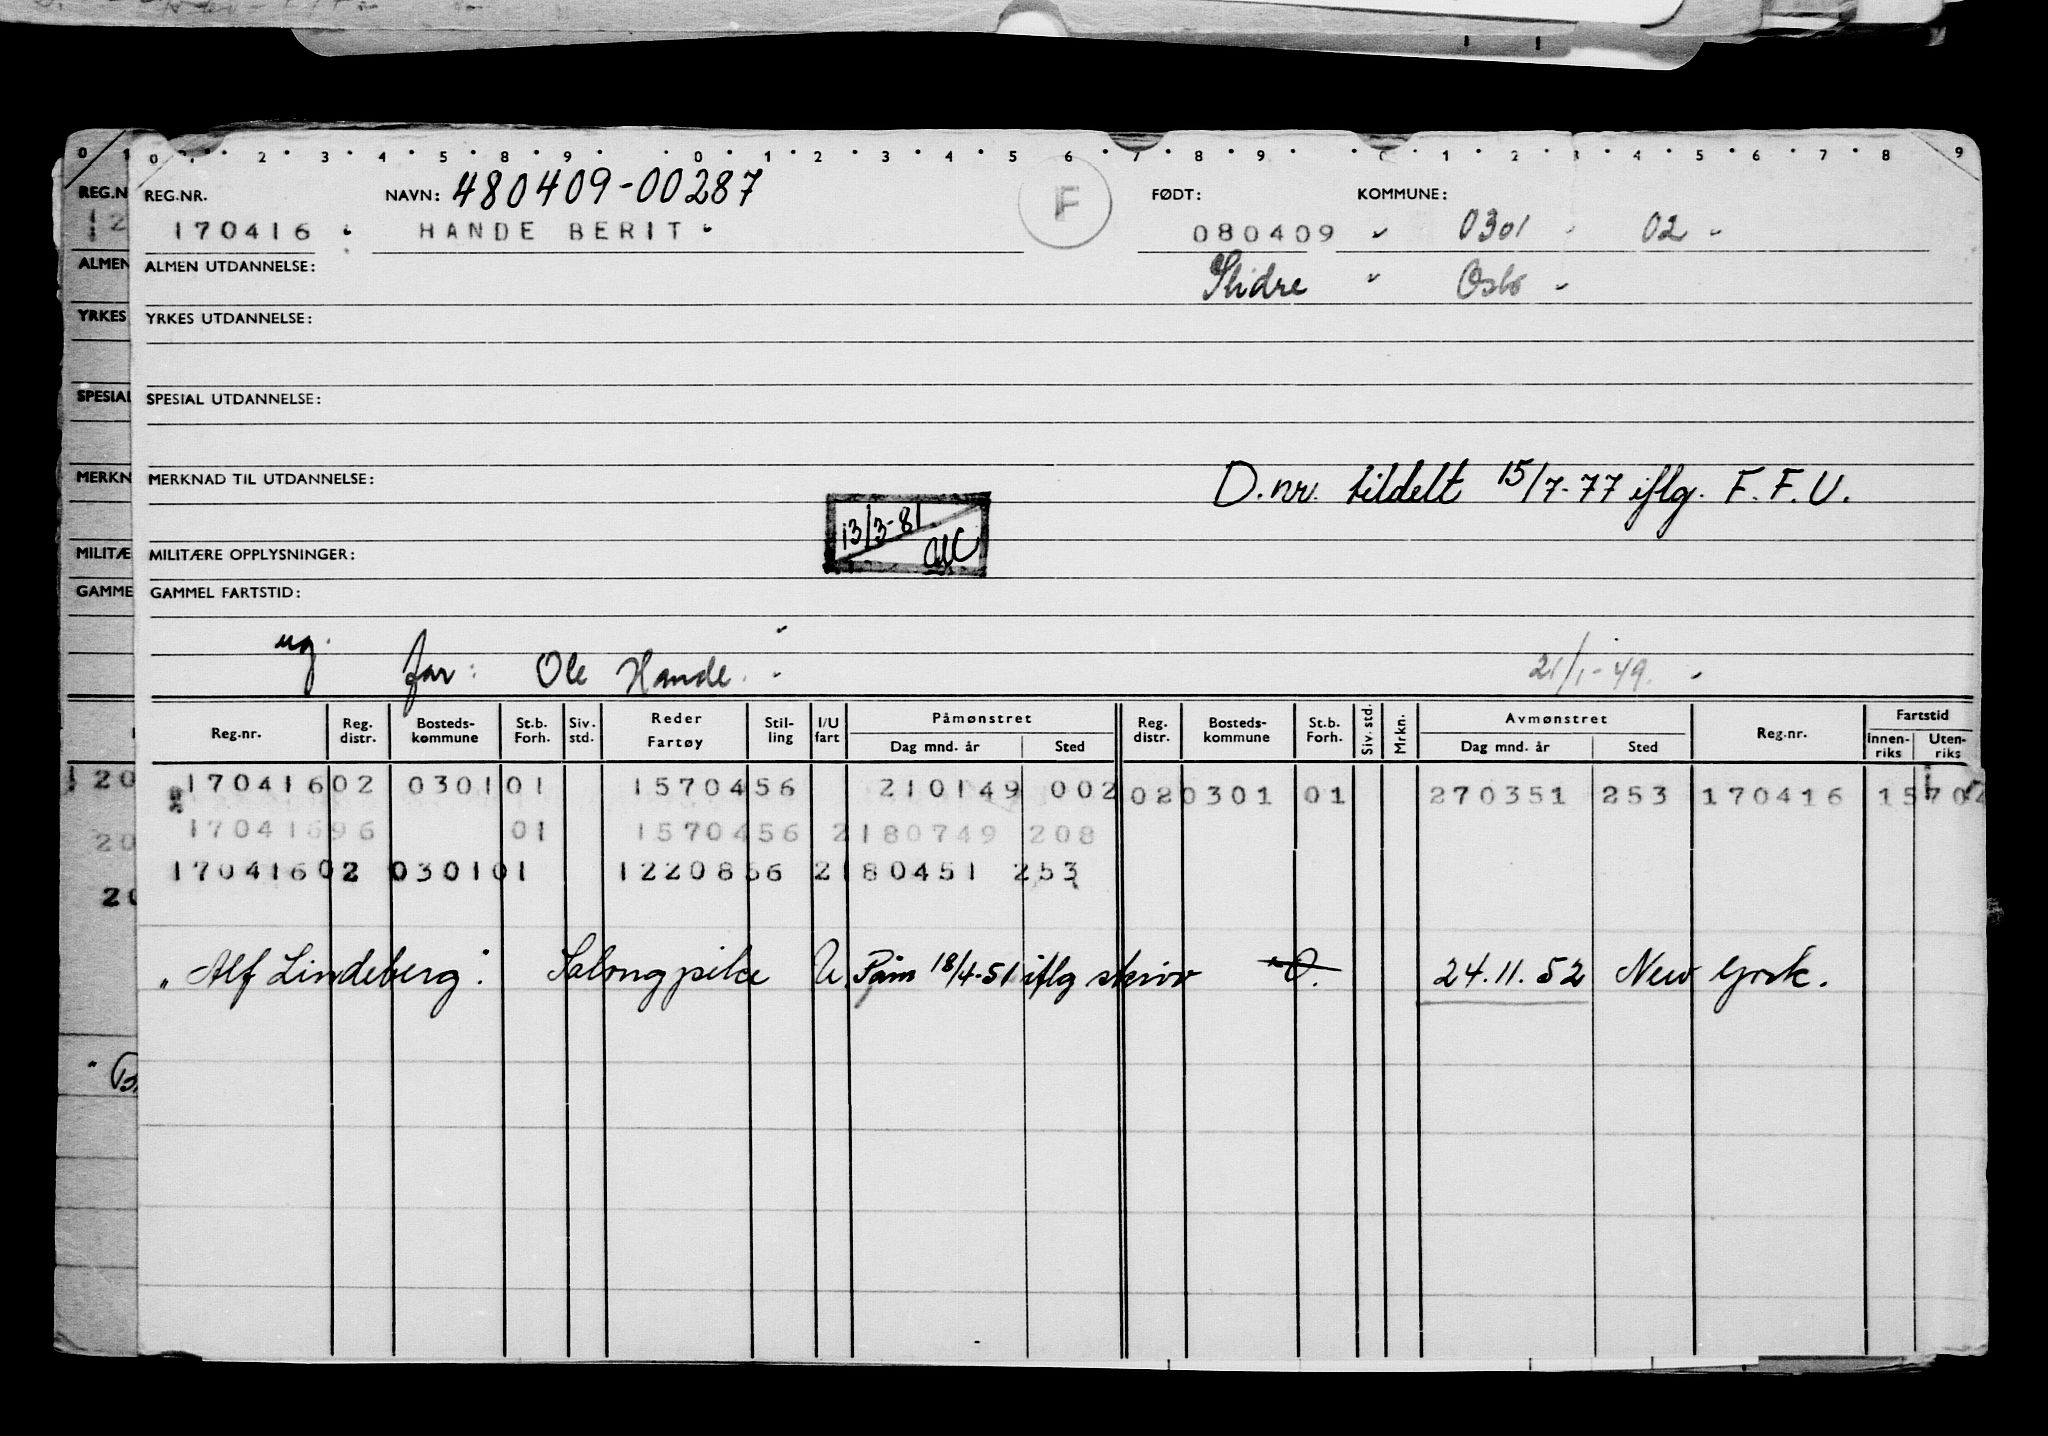 0 1 2 3 4 5 8 9 0 1 2 3 4 5 6 7 8 9 0 1 2 3 4 5 6 7 8 9
REG.NR. NAVN: 480409-00287 F FØDT: KOMMUNE:
170416 HANDE BERIT 080409 0301 02
ALMEN UTDANNELSE: Slidre Oslo
YRKES UTDANNELSE:
SPESIAL UTDANNELSE:
MERKNAD TIL UTDANNELSE: D.nr. tildelt 15/7-77 iflg. F.F.U.
13/3-81
MILITÆRE OPPLYSNINGER:
GAMMEL FARTSTID:
ug. far: Ole Hande. 21/1-49.
Reg.nr. Reg. distr. Bosteds-kommune St.b. Forh. Siv. std. Reder Fartøy Stil-ling I/U fart Påmønstret Dag mnd. år Sted Reg. distr. Bosteds-kommune St.b. Forh. Siv. std. Mrkn. Avmønstret Dag mnd. år Sted Reg.nr. Fartstid Innen-riks Uten-riks
170416 02 0301 01 1570456 210149 002 02 0301 01 270351 253 170416 15702
170416 96 01 1570456 2 180749 208
170416 02 0301 01 1220856 2 180451 253
"Alf Lindeberg". Salongpike U. Påm 18/4-51 iflg skriv 24.11.52 New York.